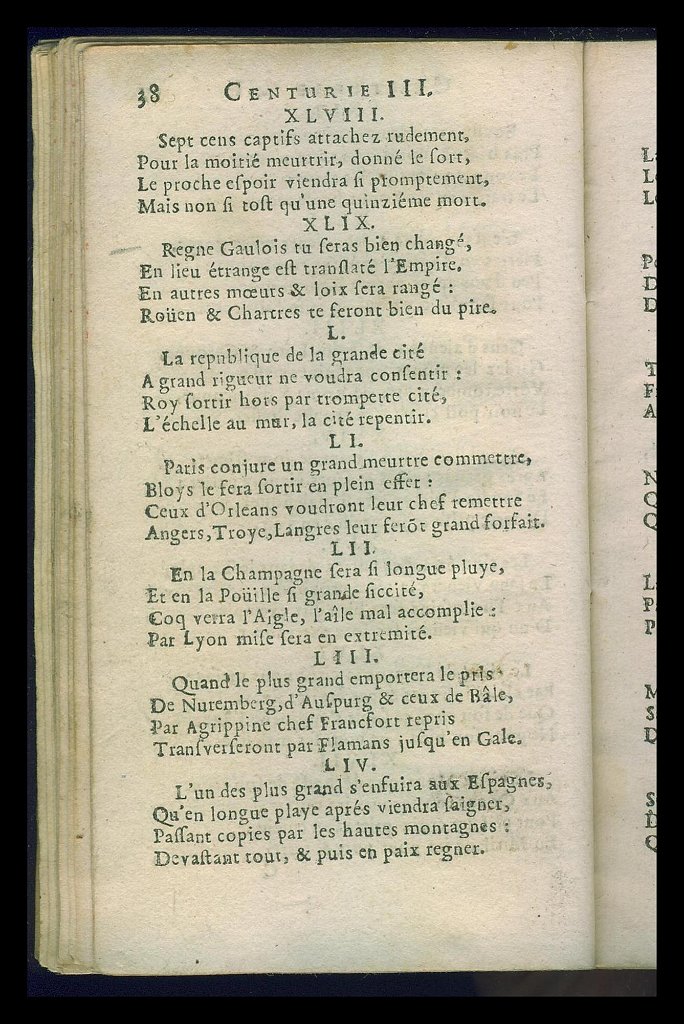 38 CENTURIE III.
XLVIII.
Sept cens captifs attachez rudement,
Pour la moitié meurtrir, donné le ſort,
Le proche eſpoir viendra ſi promptement,
Mais non ſi toſt qu'une quinziéme mort.
XLIX.
Regne Gaulois tu ſeras bien changé,
En lieu étrange eſt tranſlaté l'Empire.
En autres mœurs & loix ſera rangé :
Roüen & Chartres te feront bien du pire.
L.
La republique de la grande cité
A grand rigueur ne voudra conſentir :
Roy ſortir hors par trompette cité,
L'échelle au mur, la cité repentir.
LI.
Paris conjure un grand meurtre commettre,
Bloys le fera ſortir en plein effet :
Ceux d'Orleans voudront leur chef remettre
Angers, Troye, Langres leur ferõt grand forfait.
LII.
En la Champagne ſera ſi longue pluye,
Et en la Poüille ſi grande ſiccité,
Coq verra l'Aigle, l'aîle mal accomplie :
Par Lyon miſe ſera en extremité.
LIII.
Quand le plus grand emportera le pris
De Nuremberg, d'Auſpurg & ceux de Bâle,
Par Agrippine chef Francfort repris
Tranſverſeront par Flamans juſqu'en Gale.
LIV.
L'un des plus grand s'enfuira aux Eſpagnes,
Qu'en longue playe aprés viendra ſaigner,
Paſſant copies par les hautes montagnes :
Devaſtant tout, & puis en paix regner.